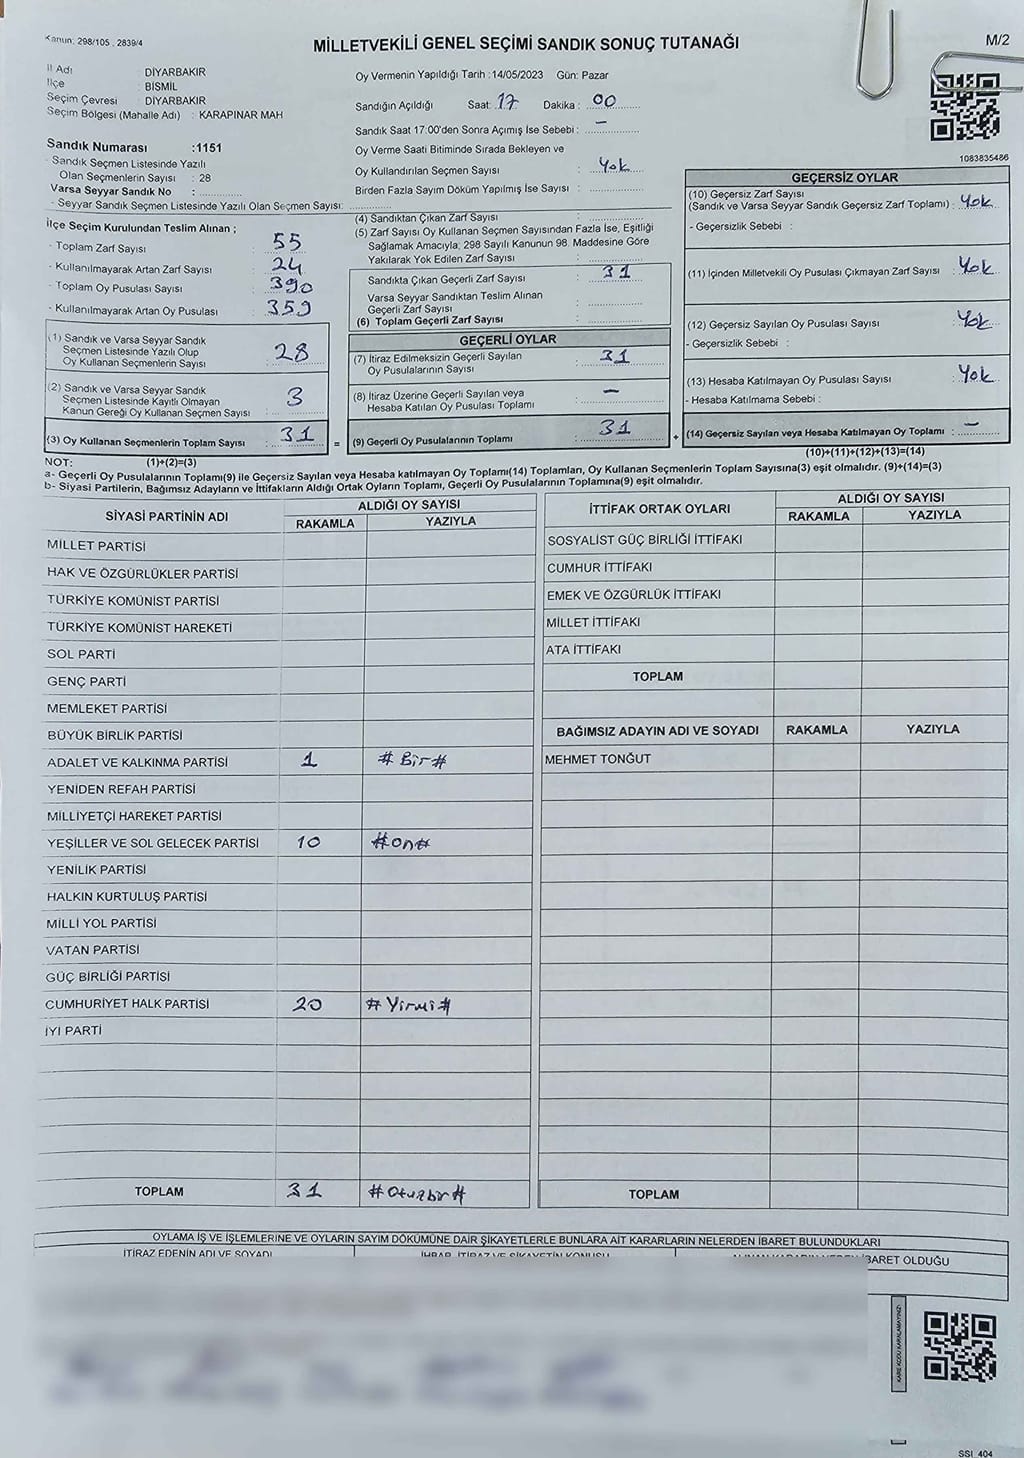 Kanun: 298/105 , 2839/4
MİLLETVEKİLİ GENEL SEÇİMİ SANDIK SONUÇ TUTANAĞI
M/2
İl Adı : DİYARBAKIR
İlçe : BİSMİL
Seçim Çevresi : DİYARBAKIR
Seçim Bölgesi (Mahalle Adı) : KARAPINAR MAH
Sandık Numarası :1151
- Sandık Seçmen Listesinde Yazılı
Olan Seçmenlerin Sayısı : 28
Varsa Seyyar Sandık No : ............
- Seyyar Sandık Seçmen Listesinde Yazılı Olan Seçmen Sayısı: ............
Oy Vermenin Yapıldığı Tarih :14/05/2023 Gün: Pazar
Sandığın Açıldığı Saat: 17 Dakika : 00
Sandık Saat 17:00'den Sonra Açımış İse Sebebi : —
Oy Verme Saati Bitiminde Sırada Bekleyen ve
Oy Kullandırılan Seçmen Sayısı : Yok
Birden Fazla Sayım Döküm Yapılmış İse Sayısı : ............
1083835486
İlçe Seçim Kurulundan Teslim Alınan ;
- Toplam Zarf Sayısı : 55
- Kullanılmayarak Artan Zarf Sayısı : 24
- Toplam Oy Pusulası Sayısı : 390
- Kullanılmayarak Artan Oy Pusulası : 359
(1) Sandık ve Varsa Seyyar Sandık
Seçmen Listesinde Yazılı Olup
Oy Kullanan Seçmenlerin Sayısı : 28
(2) Sandık ve Varsa Seyyar Sandık
Seçmen Listesinde Kayıtlı Olmayan
Kanun Gereği Oy Kullanan Seçmen Sayısı : 3
(3) Oy Kullanan Seçmenlerin Toplam Sayısı : 31
(4) Sandıktan Çıkan Zarf Sayısı : ............
(5) Zarf Sayısı Oy Kullanan Seçmen Sayısından Fazla İse, Eşitliği
Sağlamak Amacıyla, 298 Sayılı Kanunun 98. Maddesine Göre
Yakılarak Yok Edilen Zarf Sayısı : ............
Sandıkta Çıkan Geçerli Zarf Sayısı : 31
Varsa Seyyar Sandıktan Teslim Alınan
Geçerli Zarf Sayısı : ............
(6) Toplam Geçerli Zarf Sayısı : ............
GEÇERLİ OYLAR
(7) İtiraz Edilmeksizin Geçerli Sayılan
Oy Pusulalarının Sayısı : 31
(8) İtiraz Üzerine Geçerli Sayılan veya
Hesaba Katılan Oy Pusulası Toplamı : —
= (9) Geçerli Oy Pusulalarının Toplamı : 31
GEÇERSİZ OYLAR
(10) Geçersiz Zarf Sayısı
(Sandık ve Varsa Seyyar Sandık Geçersiz Zarf Toplamı) : Yok
- Geçersizlik Sebebi :
(11) İçinden Milletvekili Oy Pusulası Çıkmayan Zarf Sayısı : Yok
(12) Geçersiz Sayılan Oy Pusulası Sayısı : Yok
- Geçersizlik Sebebi :
(13) Hesaba Katılmayan Oy Pusulası Sayısı : Yok
- Hesaba Katılmama Sebebi :
+ (14) Geçersiz Sayılan veya Hesaba Katılmayan Oy Toplamı : —
NOT: (1)+(2)=(3)
(10)+(11)+(12)+(13)=(14)
a- Geçerli Oy Pusulalarının Toplamı(9) ile Geçersiz Sayılan veya Hesaba katılmayan Oy Toplamı(14) Toplamları, Oy Kullanan Seçmenlerin Toplam Sayısına(3) eşit olmalıdır. (9)+(14)=(3)
b- Siyasi Partilerin, Bağımsız Adayların ve İttifakların Aldığı Ortak Oyların Toplamı, Geçerli Oy Pusulalarının Toplamına(9) eşit olmalıdır.
SİYASİ PARTİNİN ADI
ALDIĞI OY SAYISI
RAKAMLA YAZIYLA
MİLLET PARTİSİ
HAK VE ÖZGÜRLÜKLER PARTİSİ
TÜRKİYE KOMÜNİST PARTİSİ
TÜRKİYE KOMÜNİST HAREKETİ
SOL PARTİ
GENÇ PARTİ
MEMLEKET PARTİSİ
BÜYÜK BİRLİK PARTİSİ
ADALET VE KALKINMA PARTİSİ 1 # Bir #
YENİDEN REFAH PARTİSİ
MİLLİYETÇİ HAREKET PARTİSİ
YEŞİLLER VE SOL GELECEK PARTİSİ 10 #on#
YENİLİK PARTİSİ
HALKIN KURTULUŞ PARTİSİ
MİLLİ YOL PARTİSİ
VATAN PARTİSİ
GÜÇ BİRLİĞİ PARTİSİ
CUMHURİYET HALK PARTİSİ 20 # Yirmi #
İYİ PARTİ
TOPLAM 31 #Otuzbir#
İTTİFAK ORTAK OYLARI
ALDIĞI OY SAYISI
RAKAMLA YAZIYLA
SOSYALİST GÜÇ BİRLİĞİ İTTİFAKI
CUMHUR İTTİFAKI
EMEK VE ÖZGÜRLÜK İTTİFAKI
MİLLET İTTİFAKI
ATA İTTİFAKI
TOPLAM
BAĞIMSIZ ADAYIN ADI VE SOYADI RAKAMLA YAZIYLA
MEHMET TONĞUT
TOPLAM
OYLAMA İŞ VE İŞLEMLERİNE VE OYLARIN SAYIM DÖKÜMÜNE DAİR ŞİKAYETLERLE BUNLARA AİT KARARLARIN NELERDEN İBARET BULUNDUKLARI
İTİRAZ EDENİN ADI VE SOYADI İHBAR, İTİRAZ VE ŞİKAYETİN KONUSU İBARET OLDUĞU
KARE KODU KARALAMAYINIZ!
SSI_404